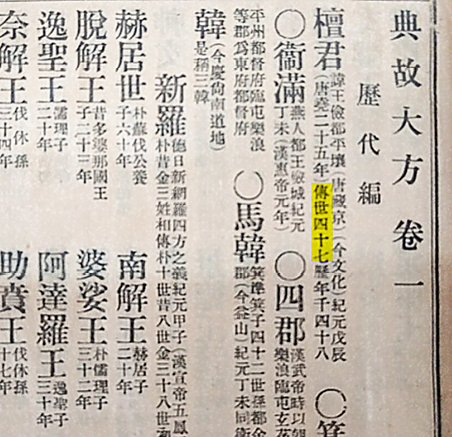 典故大方卷一
歷代編
檀君 諱王儉都平壤(唐藏京)(今文化)紀元戊辰
(唐堯二十五年)傳世四十七歷年千四十八 〇箕
〇衞滿 燕人都王儉城紀元
丁未(漢惠帝元年) 〇四郡 漢武帝時以朝
樂浪臨屯玄菟
平州都督府臨屯樂浪
等郡爲東府都督府 〇馬韓 箕準箕子四十二世孫都金
郡(今益山)紀元丁未同衞
韓 (今慶尙南道地)
是稱三韓
新羅 德日新網羅四方之義紀元甲子(漢宣帝五鳳
朴昔金三姓相傳朴十世昔八世金三十八世和
赫居世 朴蘇伐公養
子六十年 南解王 赫居子
二十年
脫解王 昔多婆那國王
子二十三年 婆娑王 朴儒理子
三十二年
逸聖王 儒理子
二十年 阿達羅王 逸聖子
三十年
奈解王 伐休孫
三十四年 助賁王 伐休孫
十七年